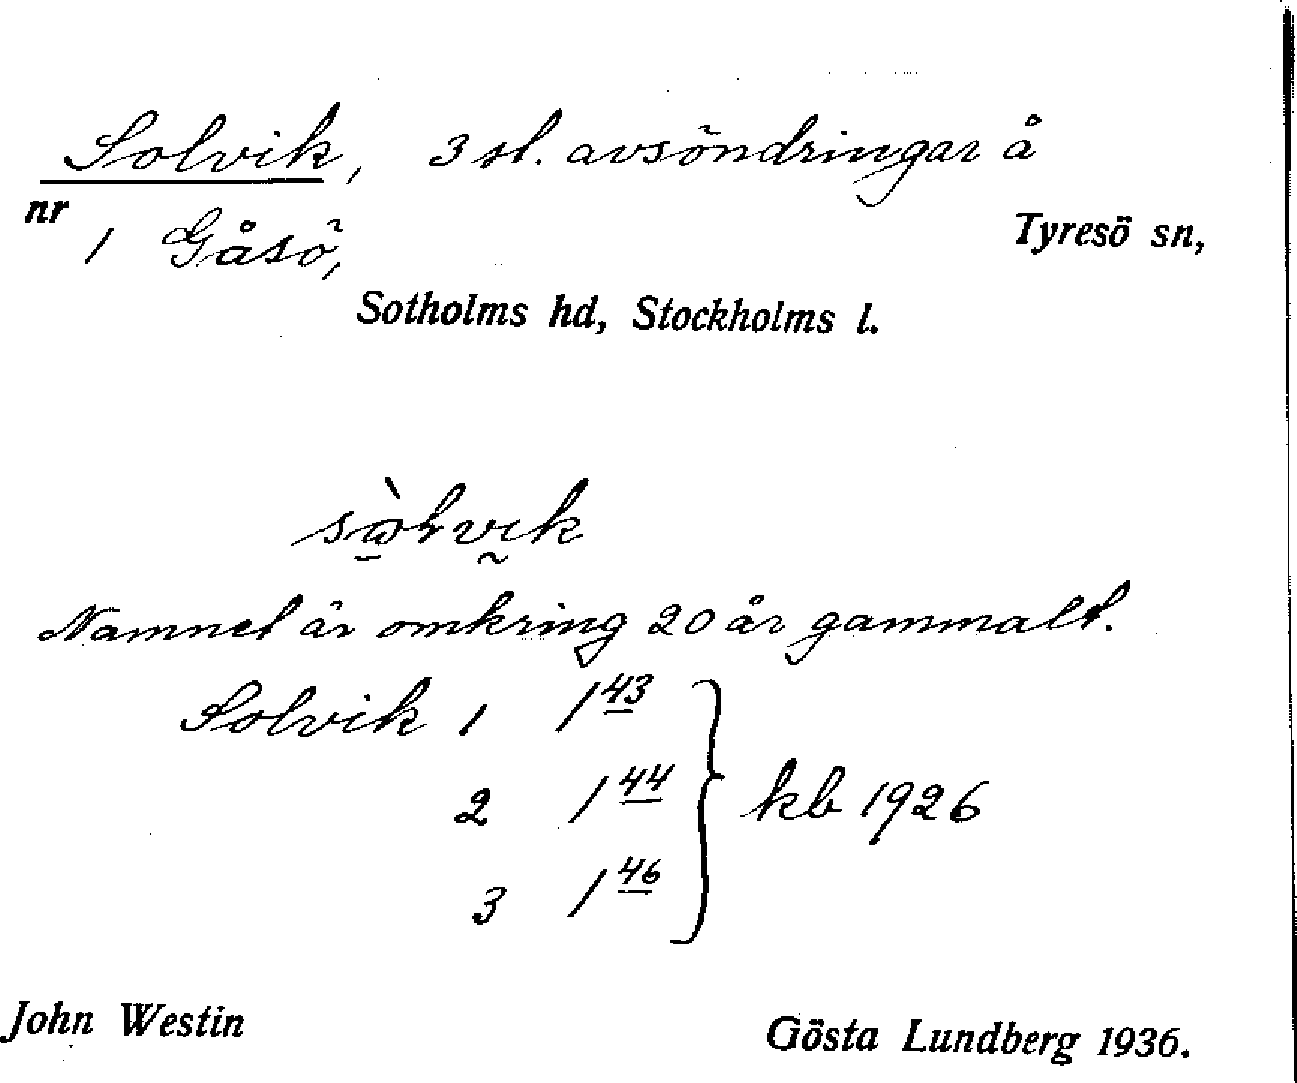 Solvik, 3 st. avsöndringar å
nr 1 Gåsö, Tyresö sn,
Sotholms hd, Stockholms l.
sὼ̲lvı̰k
Namnet är omkring 20 år gammalt.
Solvik 1 1⁴³
2 1⁴⁴ } kb 1926
3 1⁴⁶
John Westin Gösta Lundberg 1936.